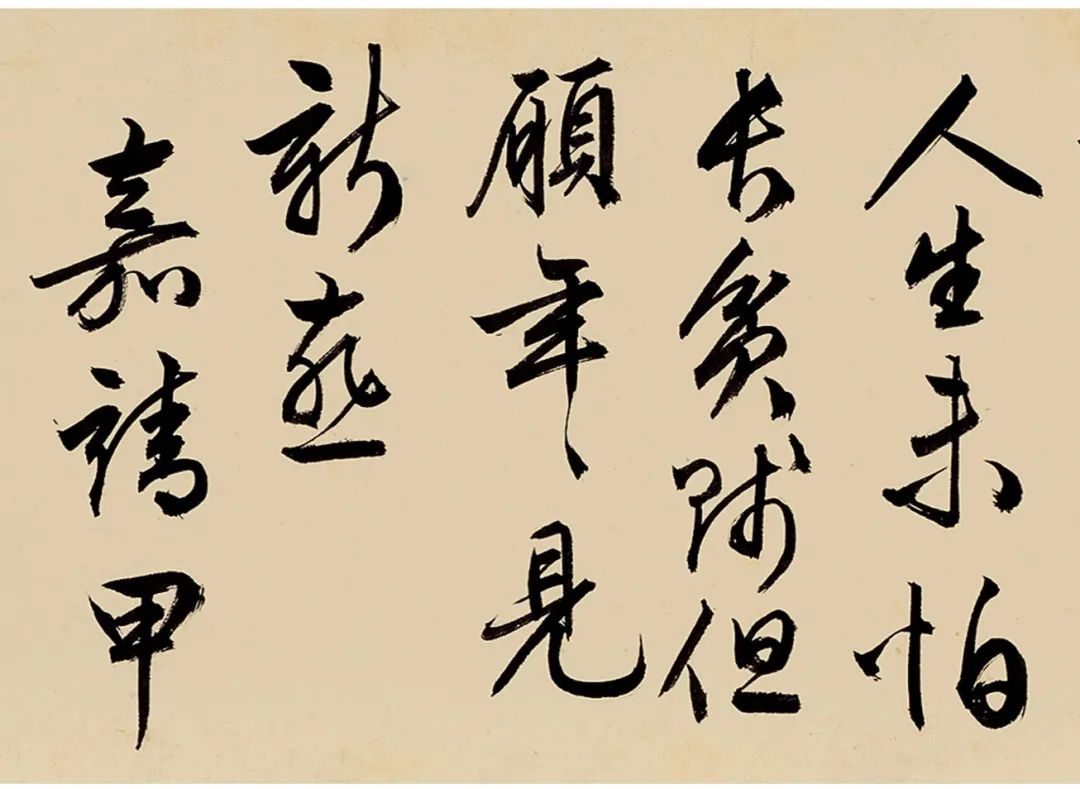 人生未怕
長貧賤但
願年々見
新燕
嘉靖甲